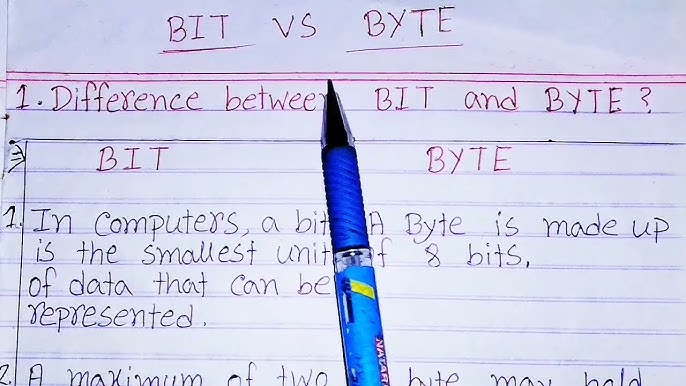 BIT VS BYTE
1. Difference between BIT and BYTE?
BIT
BYTE
1. In Computers, a bit
is the smallest unit
of data that can be
represented.
A Byte is made up
of 8 bits.
2. A maximum of two
byte may hold
NATARAJ